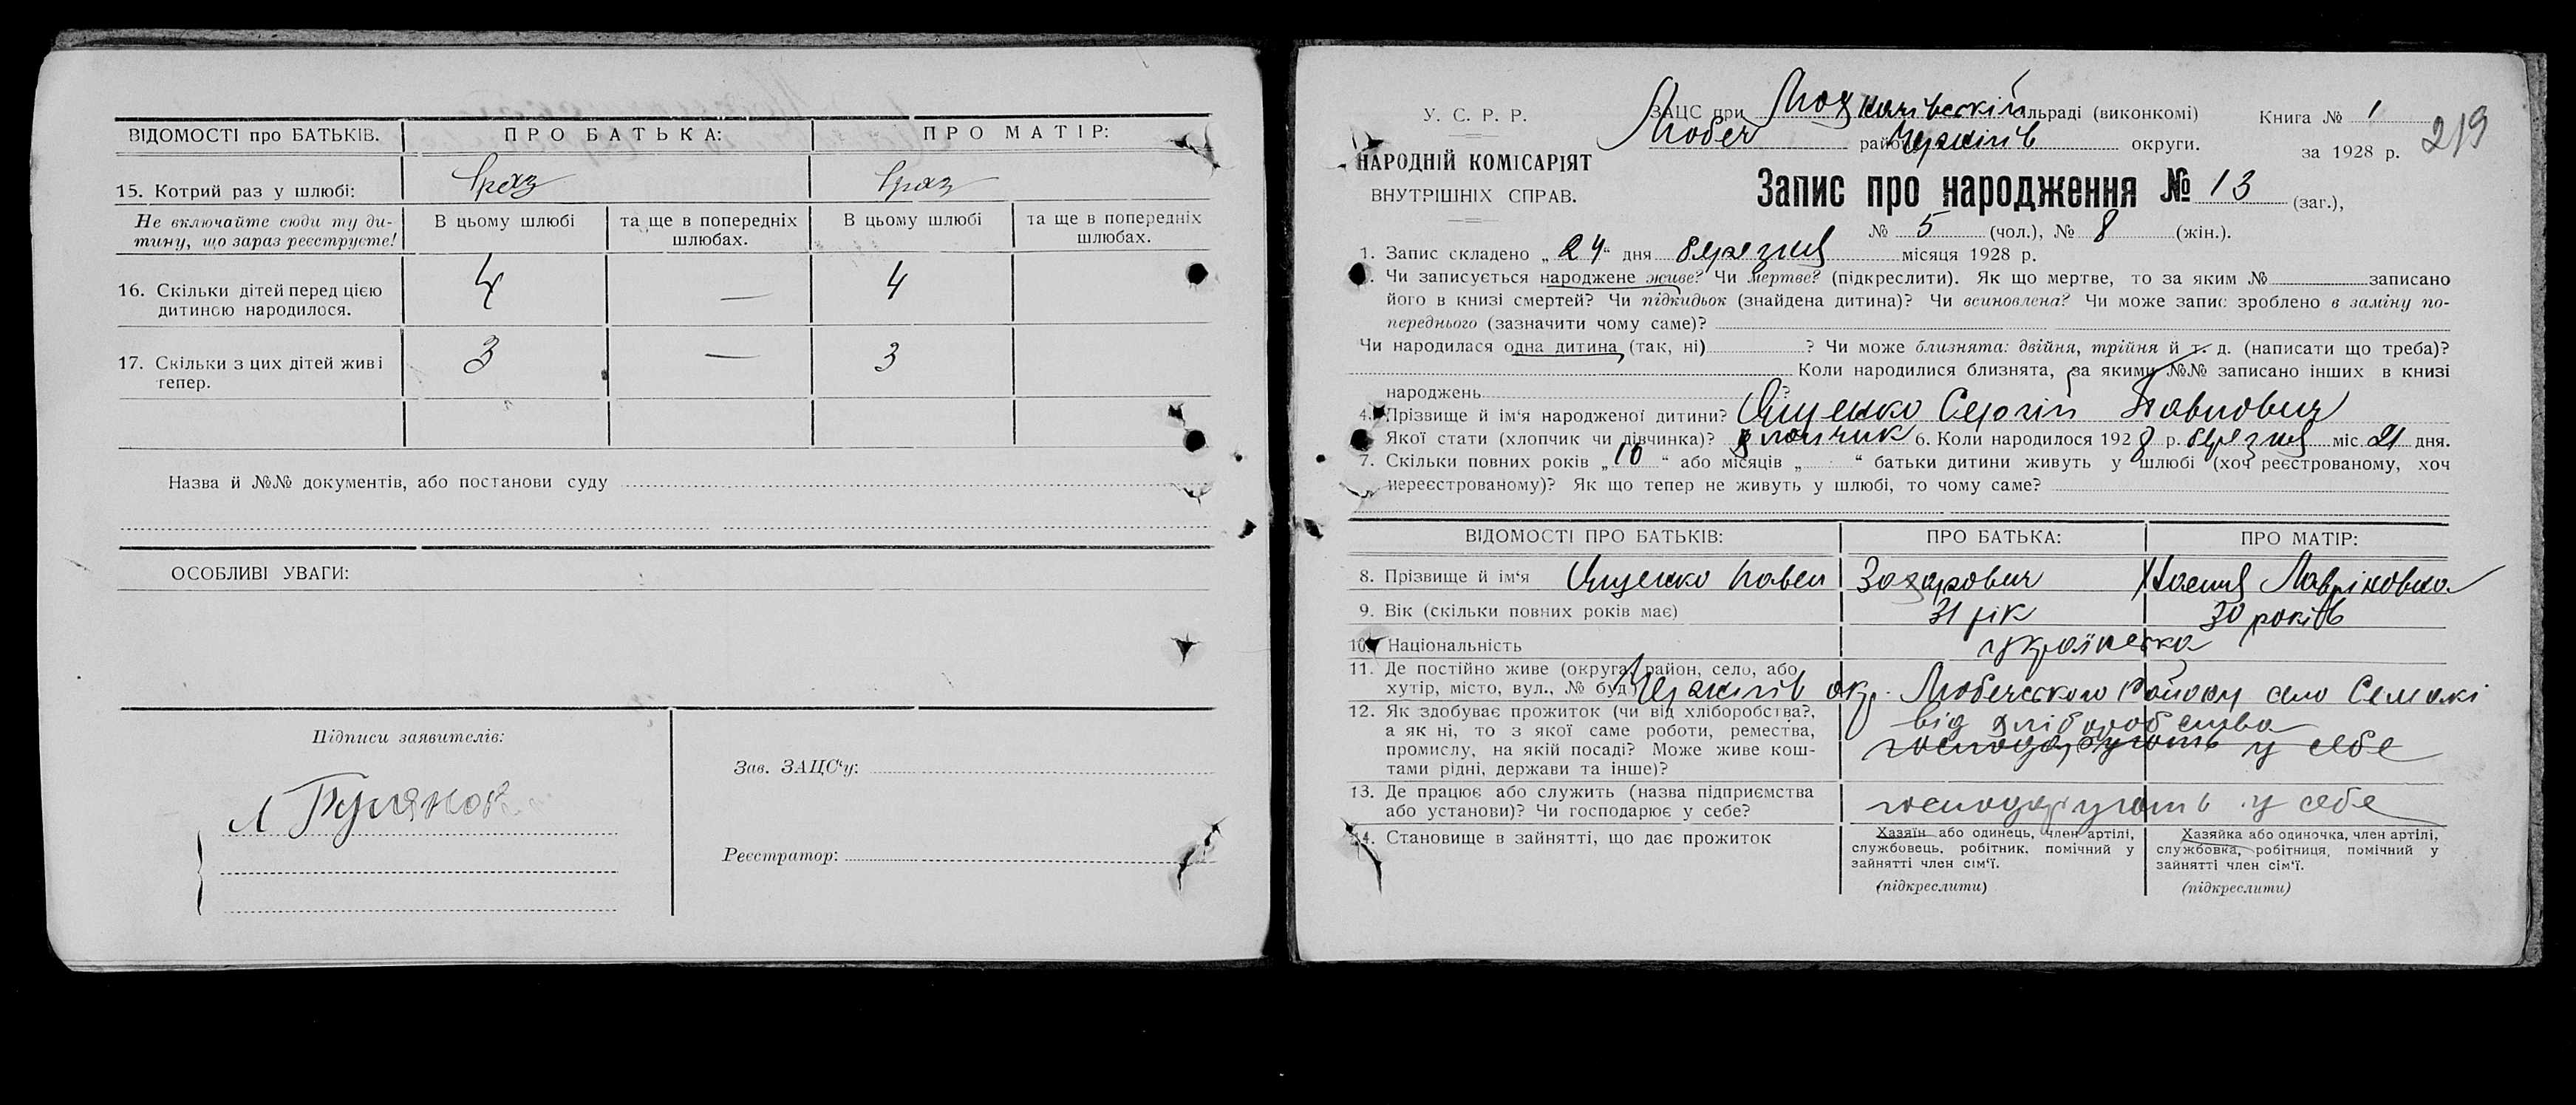 ВІДОМОСТІ про БАТЬКІВ. ПРО БАТЬКА: ПРО МАТІР:
15. Котрий раз у шлюбі: 1 раз 1 раз
Не включайте сюди ту ди- В цьому шлюбі та ще в попередніх В цьому шлюбі та ще в попередніх
тину, що зараз реєструєте! шлюбах. шлюбах.
16. Скільки дітей перед цією 4 — 4
дитиною народилося.
17. Скільки з цих дітей живі 3 — 3
тепер.
Назва й №№ документів, або постанови суду
ОСОБЛИВІ УВАГИ:
Підписи заявителів:
Зав. ЗАЦС‘у:
Реєстратор:
У. С. Р. Р. ЗАЦС при сільраді (виконкомі) Книга № 1
219
Любеч району Чернігів округи. за 1928 р.
НАРОДНІЙ КОМІСАРІЯТ
ВНУТРІШНІХ СПРАВ.
Запис про народження № 13 (заг.),
№ 5 (чол.), № 8 (жін.).
1. Запис складено „24“ дня березня місяця 1928 р.
Чи записується народжене живе? Чи мертве? (підкреслити). Як що мертве, то за яким № записано
його в книзі смертей? Чи підкидьок (знайдена дитина)? Чи всиновлена? Чи може запис зроблено в заміну по-
переднього (зазначити чому саме)?
Чи народилася одна дитина (так, ні) ? Чи може близнята: двійня, трійня й т. д. (написати що треба)?
Коли народилися близнята, за якими №№ записано інших в книзі
народжень ?
4. Прізвище й ім‘я народженої дитини? Ященко Сергій Павлович
Якої стати (хлопчик чи дівчинка)? хлопчик 6. Коли народилося 1928 р. березня міс. 21 дня.
7. Скільки повних років „10“ або місяців „ “ батьки дитини живуть у шлюбі (хоч реєстрованому, хоч
нереєстрованому)? Як що тепер не живуть у шлюбі, то чому саме?
ВІДОМОСТІ ПРО БАТЬКІВ: ПРО БАТЬКА: ПРО МАТІР:
8. Прізвище й ім‘я Ященко Павел Захарович
9. Вік (скільки повних років має) 31 рік 30 років
10. Національність українська
11. Де постійно живе (округа, район, село, або
хутір, місто, вул., № буд.) Чернігів окр. Любечського району село Семаки
12. Як здобуває прожиток (чи від хліборобства?, від хліборобства
а як ні, то з якої саме роботи, ремества, господарують у себе
промислу, на якій посаді? Може живе кош-
тами рідні, держави та інше)?
13. Де працює або служить (назва підприємства господарують у себе
або установи)? Чи господарює у себе?
14. Становище в зайнятті, що дає прожиток
Хазяїн або одинець, член артілі,
службовець, робітник, помічний у
зайнятті член сім‘ї.
(підкреслити)
Хазяйка або одиночка, член артілі,
службовка, робітниця, помічний у
зайнятті член сім‘ї.
(підкреслити)